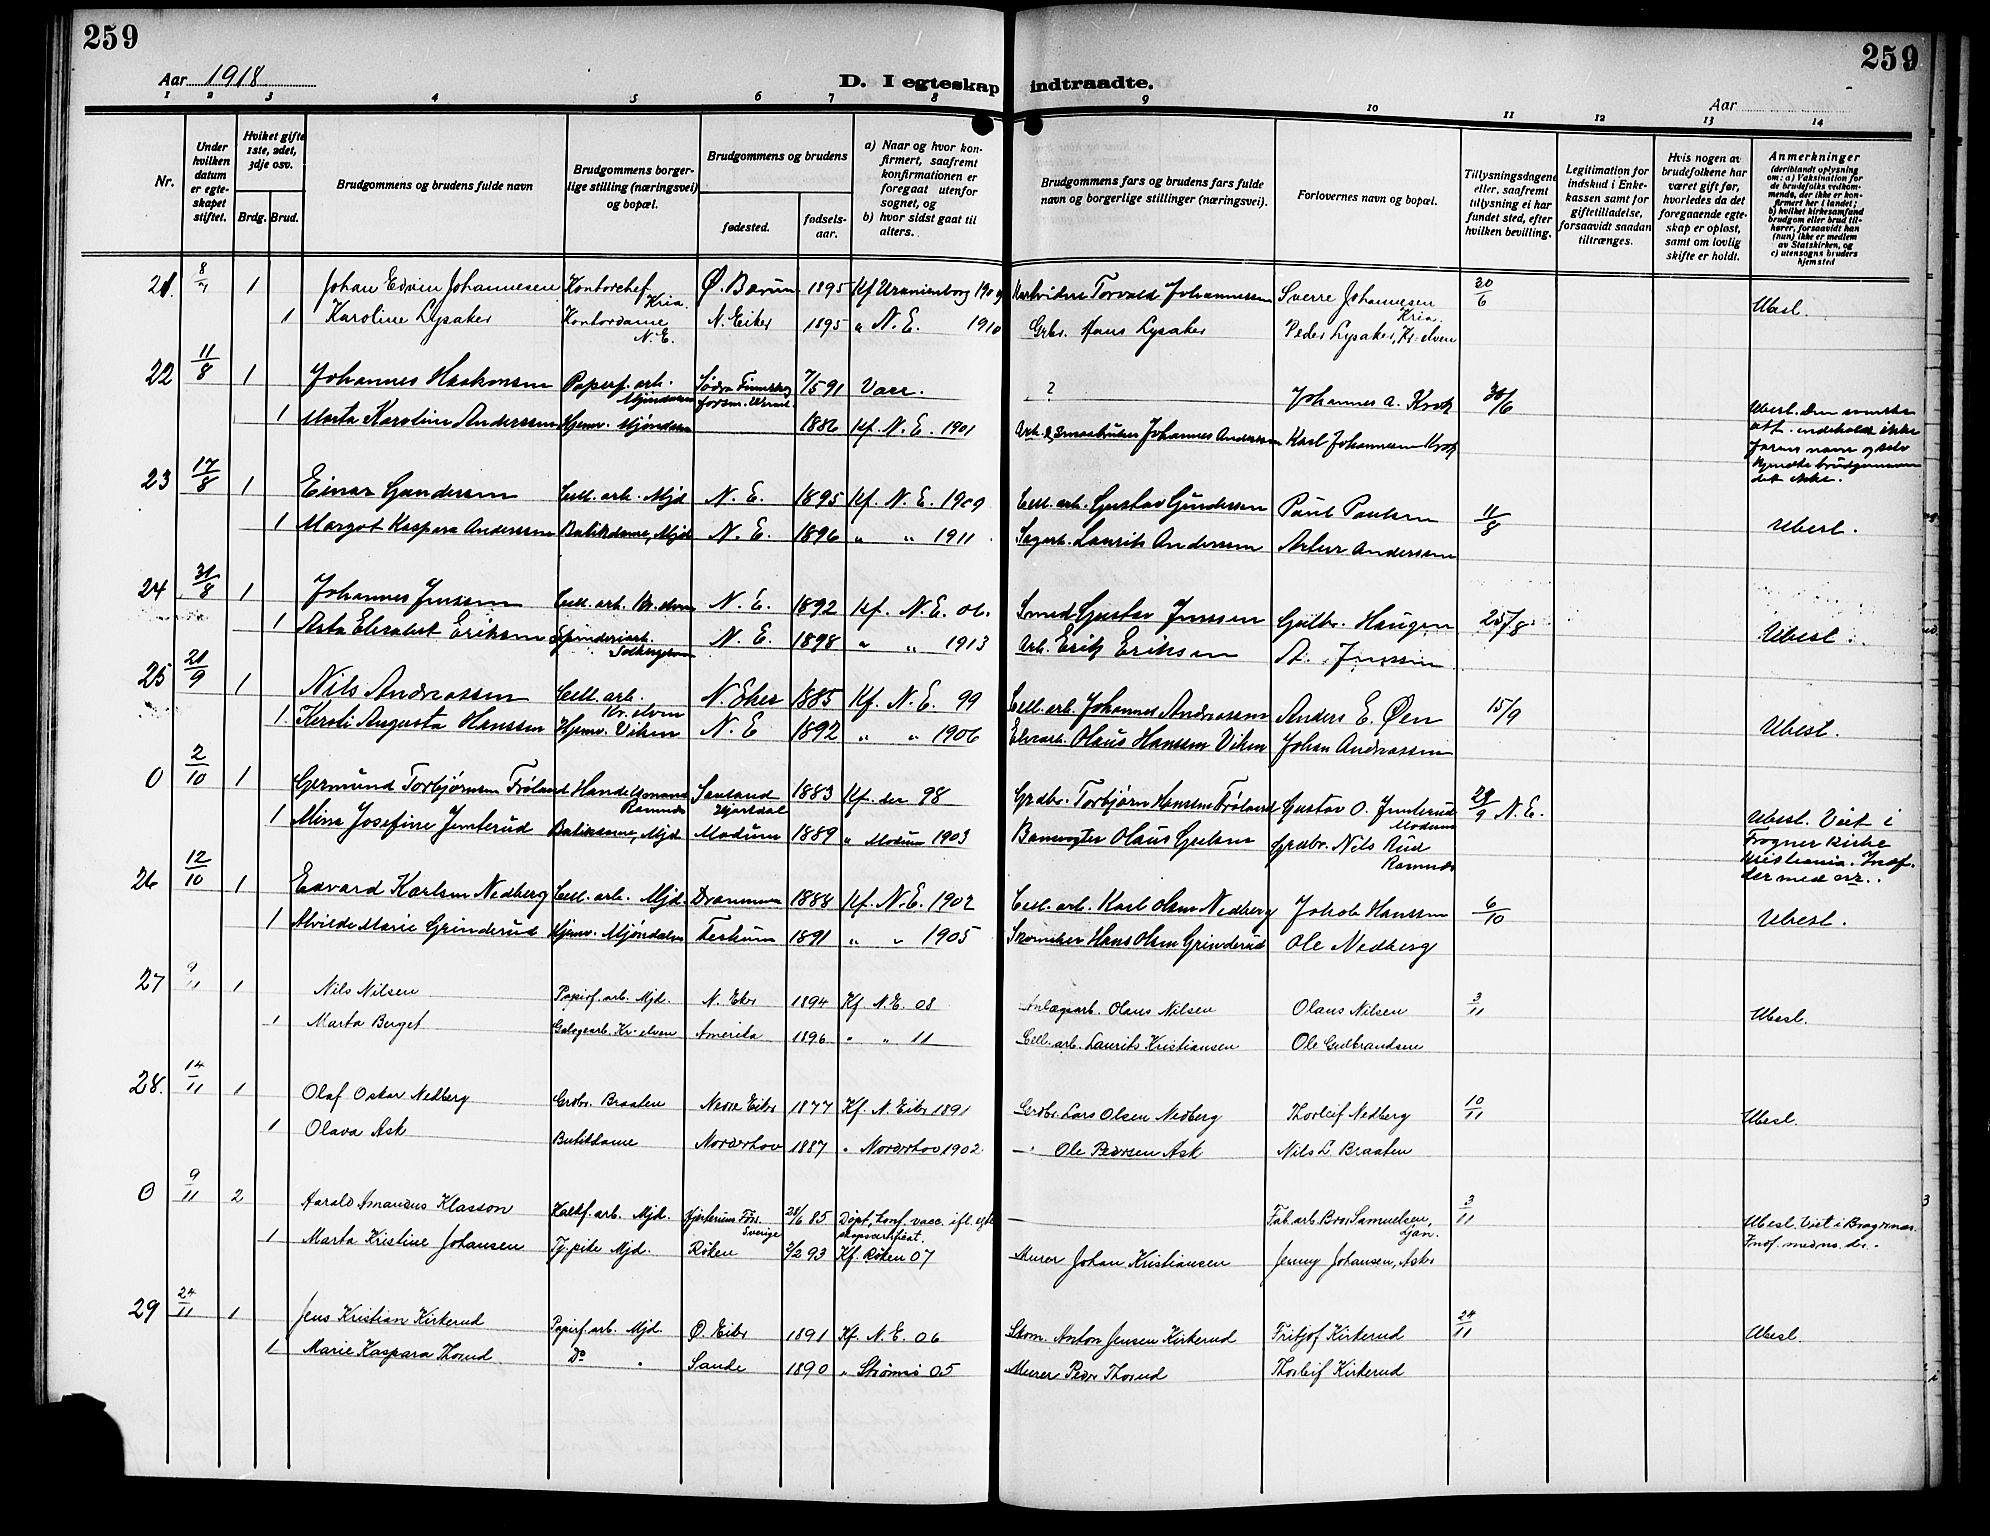 259
259
Aar 1918
D. I egteskap indtraadte.
Aar
1 2 3 4 5 6 7 8 9 10 11 12 13 14
Nr.
Under hvilken datum er egteskapet stiftet.
Hviket gifte 1ste, 2det, 3dje osv.
Brdg. Brud.
Brudgommens og brudens fulde navn
Brudgommens borgerlige stilling (næringsvei) og bopæl.
Brudgommens og brudens
fødested.
fødselsaar.
a) Naar og hvor konfirmert, saafremt konfirmationen er foregaat utenfor sognet, og
b) hvor sidst gaat til alters.
Brudgommens fars og brudens fars fulde navn og borgerlige stillinger (næringsvei).
Forlovernes navn og bopæl.
Tillysningsdagene eller, saafremt tillysning ei har fundet sted, efter hvilken bevilling.
Legitimation for indskud i Enkekassen samt for giftetilladelse, forsaavidt saadan tiltrænges.
Hvis nogen av brudefolkene har været gift før, hvorledes da det foregaaende egteskap er opløst, samt om lovlig skifte er holdt.
Anmerkninger
(deriblandt oplysning om: a) Vaksination for de brudefolks vedkommende, der ikke er konfirmert her i landet;
b) hvilket kirkesamfund brudgom eller brud tilhører, forsaavidt han (hun) ikke er medlem av Statskirken, og
c) utensogns bruders hjemsted
21. 8/7 1 Johan Edvin Johannesen Kontorchef Kria. Ø. Bærum 1895 Kf Uranienborg 1909 Torvald Johannessen Sverre Johannesen Kria. 30/6 Ubesl.
1 Karoline Lysaker Kontordame N.E. N. Eiker 1895 " N.E. 1910 Grbr. Hans Lysaker Peder Lysaker, Kr-elven
22 11/8 1 Johannes Haakonsen Papirf. arb. Mjøndalen Södra Finnskog 7/5 91 Vacc. ? Johannes A. Krok 30/6
1 Marta Karoline Anderssen Hjemv. Mjøndalen 1886 Kf. N.E. 1901 Arb. & Smaabruker Johannes Anderssen Karl Johannesen Krok
Ubesl. Den svenske att. indeholdt ikke farens navn og selv kjendte brudgommen det ikke.
23 17/8 1 Einar Gundersen Cell. arb. Mjd N. E. 1895 Kf. N. E. 1909 Cell. arb. Gustav Gundersen Paul Paulsen 11/8 Ubesl.
1 Margot Kaspara Anderssen Butikdame, Mjd N. E. 1896 " " 1911 Sagarb. Laurits Anderssen Artur Anderssen
24 31/8 1 Johannes Jenssen Cell. arb. Kr. elven N. E. 1892 Kf. N.E. 06. Smed Gustav Jenssen Gulbr. Haugen 25/8 Ubesl.
1 Asta Elisabet Eriksen Spinneriarb. N. E. 1898 " " 1913 Arb. Erik Eriksen A. Jenssen
25 28/9 1 Nils Andreassen Cell. arb. Kr. elven N. Eker 1885 Kf. N.E. 99 Cell. arb. Johannes Andreassen Anders E. Øen 15/9 Ubesl.
1 Kersti Augusta Hanssen Hjemv. Viken N. E 1892 " " 1906 Elvearb. Olaus Hanssen Viken Johan Andreassen
0 2/10 1 Germund Torbjørnsen Frøland Handelsmand Ramnes Sauland Hjartdal 1883 Kf. der 98 Grdbr. Torbjørn Hansen Frøland Gustav O. Jemterud Modum 29/9 N.E.
1 Mina Josefine Jemterud Butikdame, Mjd. Modum 1889 " Modum 1903 Banevogter Olaus Gulsen Grdbr. Nils Rud Ramnes
Ubesl. Viet i Frogner kirke Kristiania. Indf. der med nr.
26 12/10 1 Edvard Karlsen Nedberg Cell. arb. Mjd. Drammen 1888 Kf. N.E. 1902 Cell. arb. Karl Olsen Nedberg Jakob Hanssen 6/10 Ubesl.
1 Alvilde Marie Grinderud Hjemv. Mjøndalen Feskum 1891 " " 1905 Skomaker Hans Olsen Grinderud Ole Nedberg
27 9/11 1 Nils Nilsen Papirf. arb. Mjd. N. Eker 1894 Kf N.E. 08 Anlægsarb. Olaus Nilsen Olaus Nilsen 3/11 Ubesl.
1 Marta Berget Kr-elven Amerika 1896 " " 11 Cell. arb. Laurits Kristiansen Ole Gulbrandsen
28. 14/11 1 Olaf Oskar Nedberg Grdbr. Braaten Nedre Eiker 1877 Kf. N Eiker 1891 Grdbr Lars Olsen Nedberg Thorleif Nedberg 10/11 Ubesl.
1 Olava Ask Butikdame Norderhov 1887 " Norderhov 1902 — " Ole Pedersen Ask Nils L. Braaten
0 9/11 2 Harald Amandus Klasson Kalkf. arb. Mjd. Sverige 28/6 85 Døpt, konf. vacc. ifl. egteskapsertifeat. — Fab. arb Bror Samuelsen, Ljan. 3/11
1 Marta Kristine Johansen Tj. pike Mjd. Røken 3/2 93 Kf. Røken 07 Murer Johan Kristiansen Jenny Johansen, Asker
Ubesl. Viet i Bragernes. Indf. med no. der.
29 24/11 1 Jens Kristian Kirkerud Papirf. arb. Mjd. Ø. Eiker 1891 Kf. N. E. 06 Skom. Anton Jensen Kirkerud Fritjof Kirkerud 24/11 Ubesl.
1 Marie Kaspara Thorud Do " Sande 1890 " Strømsø 05 Murer Peder Thorud Thorleif Kirkerud